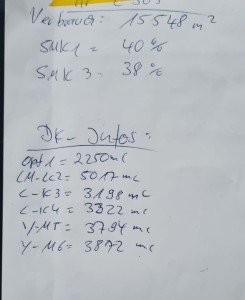 Verbrauch: 15548 m²
SMK1 = 40%
SMK3 = 38%
DK-Infos:
Opt1 = 2250mc
LM-LC2 = 5017mc
C-K3 = 3198mc
C-K4 = 3322 mc
Y-M5 = 3794 mc
Y-M6 = 3872 mc